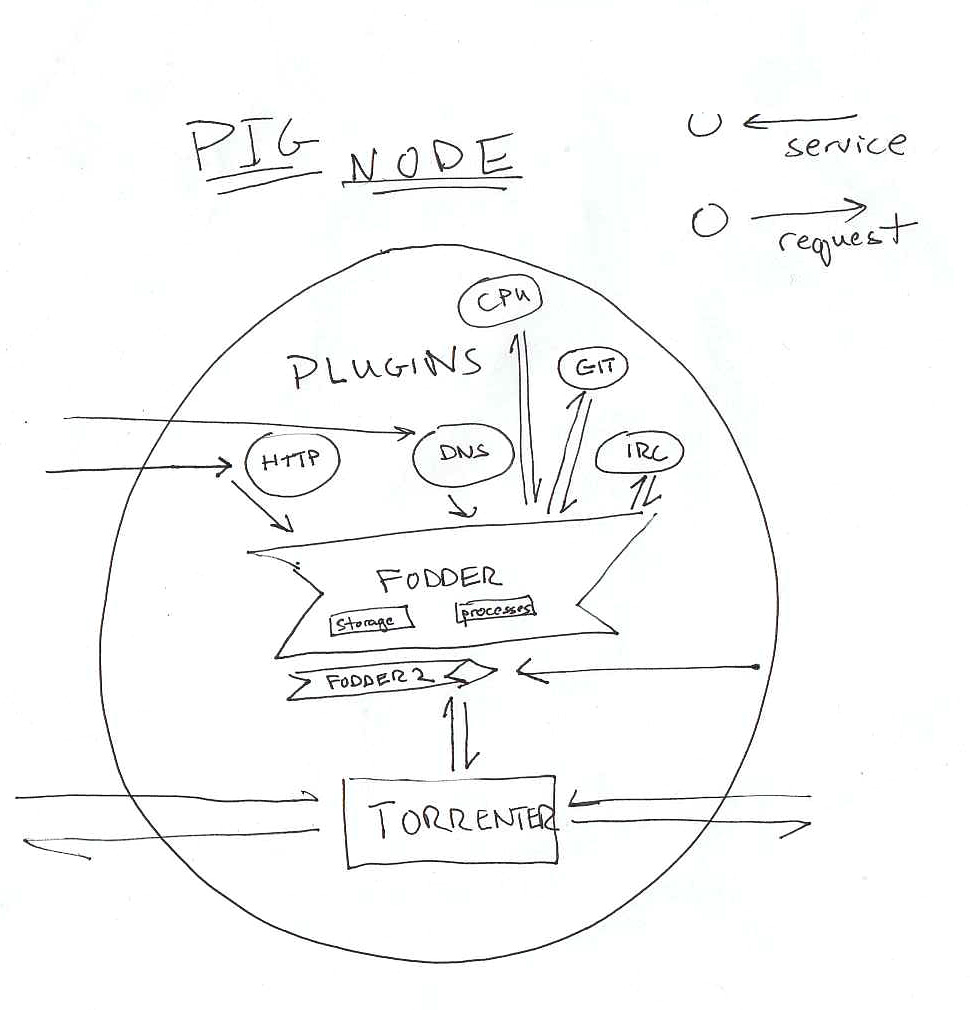 PIG NODE
service
request
CPU
PLUGINS
GIT
HTTP
DNS
IRC
FODDER
storage
processes
FODDER 2
TORRENTER